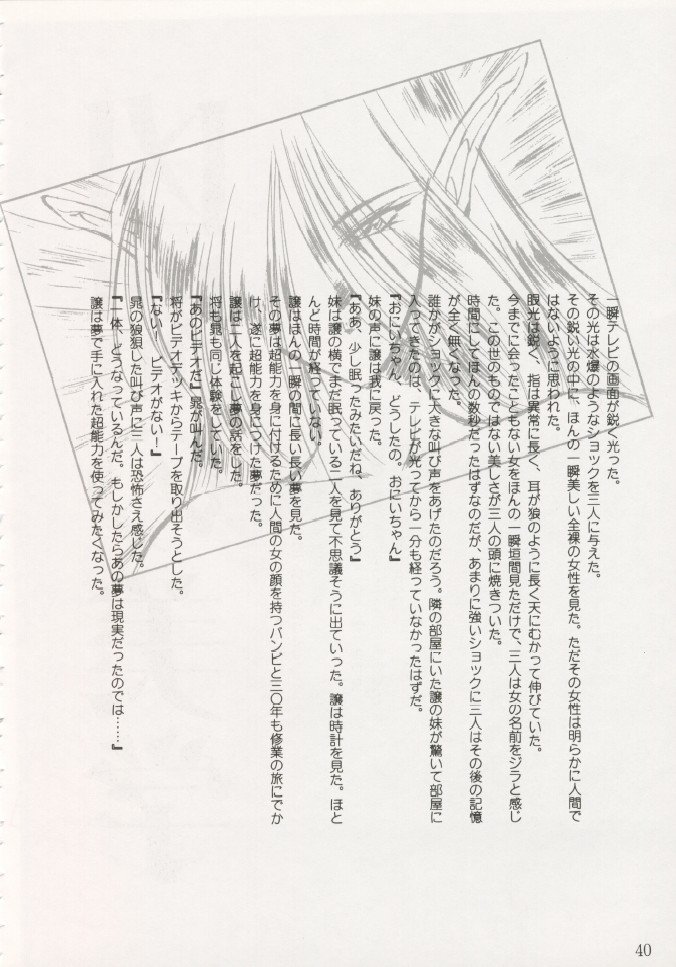 一瞬テレビの画面が鋭く光った。
その光は水爆のようなショックを三人に与えた。
その鋭い光の中に、ほんの一瞬美しい全裸の女性を見た。ただその女性は明らかに人間で
はないように思われた。
眼光は鋭く、指は異常に長く、耳が狼のように長く天にむかって伸びていた。
今までに会ったこともない女をほんの一瞬垣間見ただけで、三人は女の名前をジラと感じ
た。この世のものではない美しさが三人の頭に焼きついた。
時間にしてほんの数秒だったはずなのだが、あまりに強いショックに三人はその後の記憶
が全く無くなった。
誰かがショックに大きな叫び声をあげたのだろう。隣の部屋にいた譲の妹が驚いて部屋に
入ってきたのは、テレビが光ってから一分も経っていなかったはずだ。
『おにいちゃん、どうしたの。おにいちゃん』
妹の声に譲は我に戻った。
『ああ、少し眠ったみたいだね、ありがとう』
妹は譲の横でまだ眠っている二人を見て不思議そうに出ていった。譲は時計を見た。ほと
んど時間が経っていない。
譲はほんの一瞬の間に長い長い夢を見た。
その夢は超能力を身に付けるために人間の女の顔を持つバンビと三〇年も修業の旅にでか
け、遂に超能力を身につけた夢だった。
譲は二人を起こし夢の話をした。
将も晃も同じ体験をしていた。
『あのビデオだ』晃が叫んだ。
将がビデオデッキからテープを取り出そうとした。
『ない、ビデオがない！』
晃の狼狽した叫び声に三人は恐怖さえ感じた。
『一体、どうなっているんだ。もしかしたらあの夢は現実だったのでは……』
譲は夢で手に入れた超能力を使ってみたくなった。
40